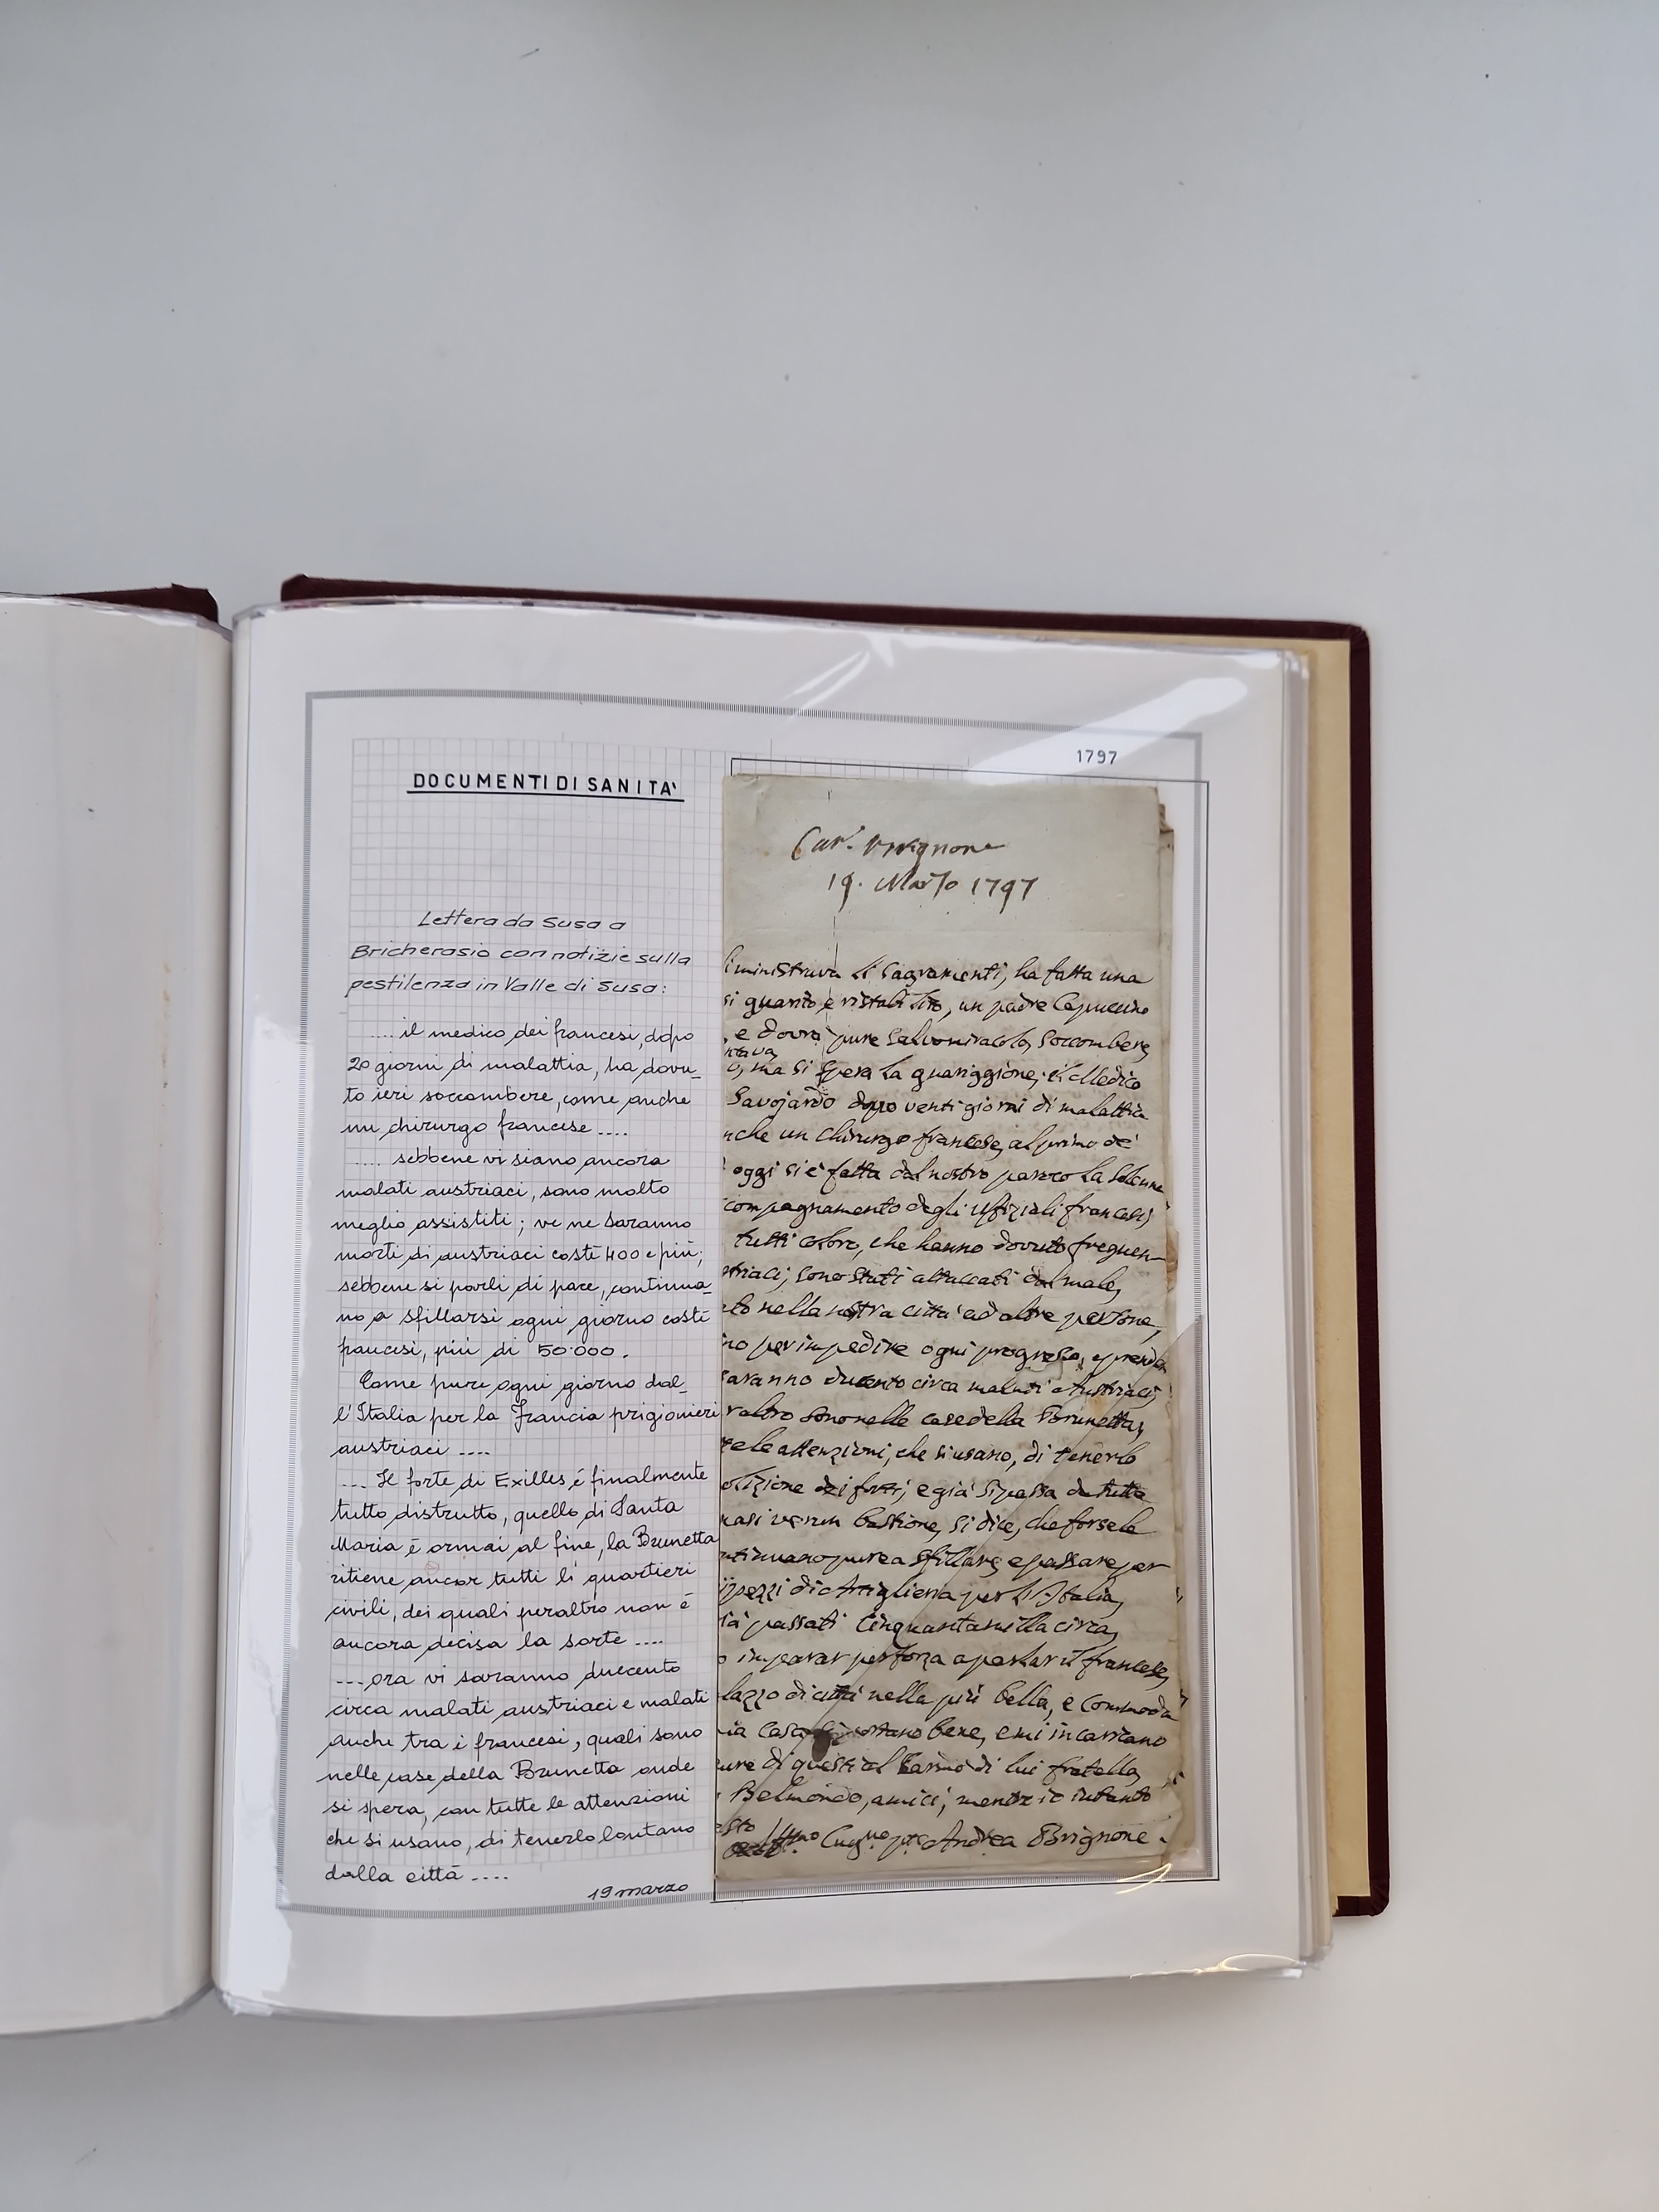 1797
DOCUMENTI DI SANITA'
Lettera da Susa a
Bricherasio con notizie sulla
pestilenza in Valle di Susa:
.... il medico dei francesi, dopo
20 giorni di malattia, ha dovu_
to ieri soccombere, come anche
un chirurgo francese ....
.... sebbene vi siano ancora
malati austriaci, sono molto
meglio assistiti; ve ne saranno
morti di austriaci costì 400 e più;
sebbene si parli di pace, continua_
no a sfillarsi ogni giorno costì
francesi, più di 50.000.
Come pure ogni giorno dal_
l'Italia per la Francia prigionieri
austriaci ....
.... Il forte di Exilles é finalmente
tutto distrutto, quello di Santa
Maria é ormai al fine, la Brunetta
ritiene ancor tutti li quartieri
civili, dei quali peraltro non é
ancora decisa la sorte ....
.... ora vi saranno duecento
circa malati austriaci e malati
anche tra i francesi, quali sono
nelle case della Brunetta onde
si spera, con tutte le attenzioni
che si usano, di tenerlo lontano
dalla città ....
19 marzo
Brignone
19. Marzo 1797
ministrava li Sagramenti, ha fatta una
si quanto è ristabilito, un padre Capuccino
e dovrà pure Salvo miracolo, Soccombere,
ntava,
o, ma si spera la guariggione; il Medico
Savojardo dopo venti giorni di malattia
nche un Chirurgo francese, al primo de'
oggi si è fatta dal nostro paroco la Solenne
compagnamento degli Uffiziali francesi,
tutti coloro, che hanno dovuto frequen-
striaci, sono stati attaccati dal male,
to nella nostra città ad altre persone,
no per impedire ogni progresso, e
saranno duecento circa malati Austriaci,
r altro sono nelle case della Brunetta,
te le attenzioni, che si usano, di tenerlo
olizione dei forti, e già si passa da tutte
uasi verun bastione, si dice, che forse la
ntinuano pure a sfillare, e passare per
pezzi di Artiglieria per l'Italia,
ià passati Cinquantamilla circa,
o imparar per forza a parlar il francese,
lazzo di città nella più bella, e commoda
ia Casa stano bene, e mi incaricano
ure di questi al di lui fratello,
Belmondo, amici, mentre io intanto
sto
Andrea Brignone.